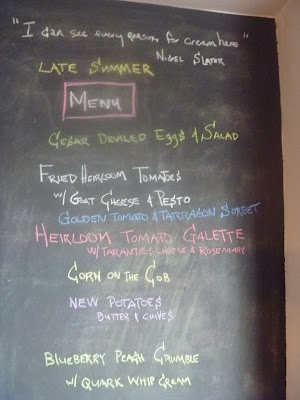 "I can see every reason for cream here"
Nigel Slater
LATE SUMMER
MENU
CESAR DEVILED EGGS & SALAD
FRIED HEIRLOOM TOMATOES
W/ GOAT CHEESE & PESTO
GOLDEN TOMATO & TARRAGON SORBET
HEIRLOOM TOMATO GALETTE
W/ TARANTIES CHEESE & ROSEMARY
CORN ON THE COB
NEW POTATOES
BUTTER & CHIVES
BLUEBERRY PEACH CRUMBLE
W/ QUARK WHIP CREAM